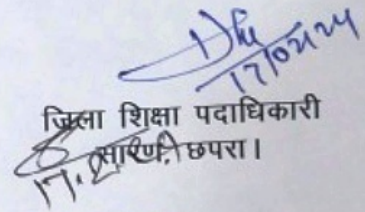 17/02/24
जिला शिक्षा पदाधिकारी
सारण, छपरा।